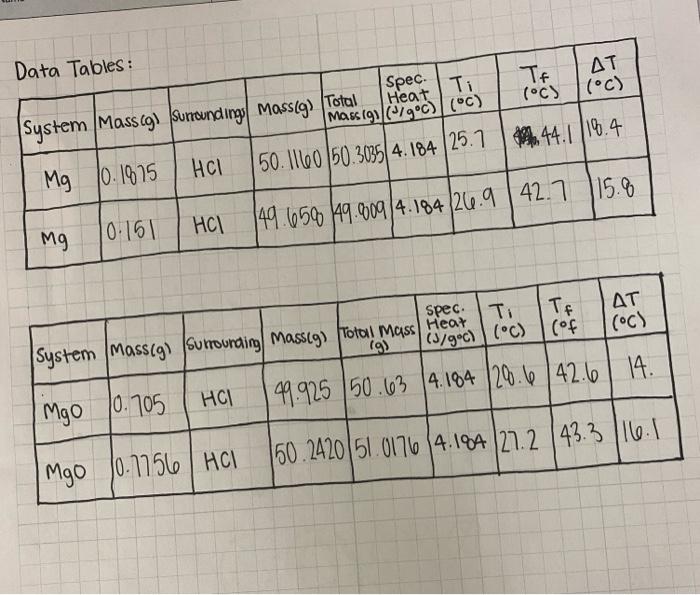 Data Tables:
System Mass(g) Surroundings Mass(g) Total Mass(g) Spec. Heat (J/g°C) Ti (°C) Tf (°C) ΔT (°C)
Mg 0.1875 HCl 50.1160 50.3035 4.184 25.7 44.1 18.4
Mg 0.151 HCl 49.658 49.809 4.184 26.9 42.7 15.8
System Mass(g) Surrounding Mass(g) Total Mass (g) Spec. Heat (J/g°C) Ti (°C) Tf (°f ΔT (°C)
MgO 0.705 HCl 49.925 50.63 4.184 28.6 42.6 14.
MgO 0.7756 HCl 50.2420 51.0176 4.184 27.2 43.3 16.1